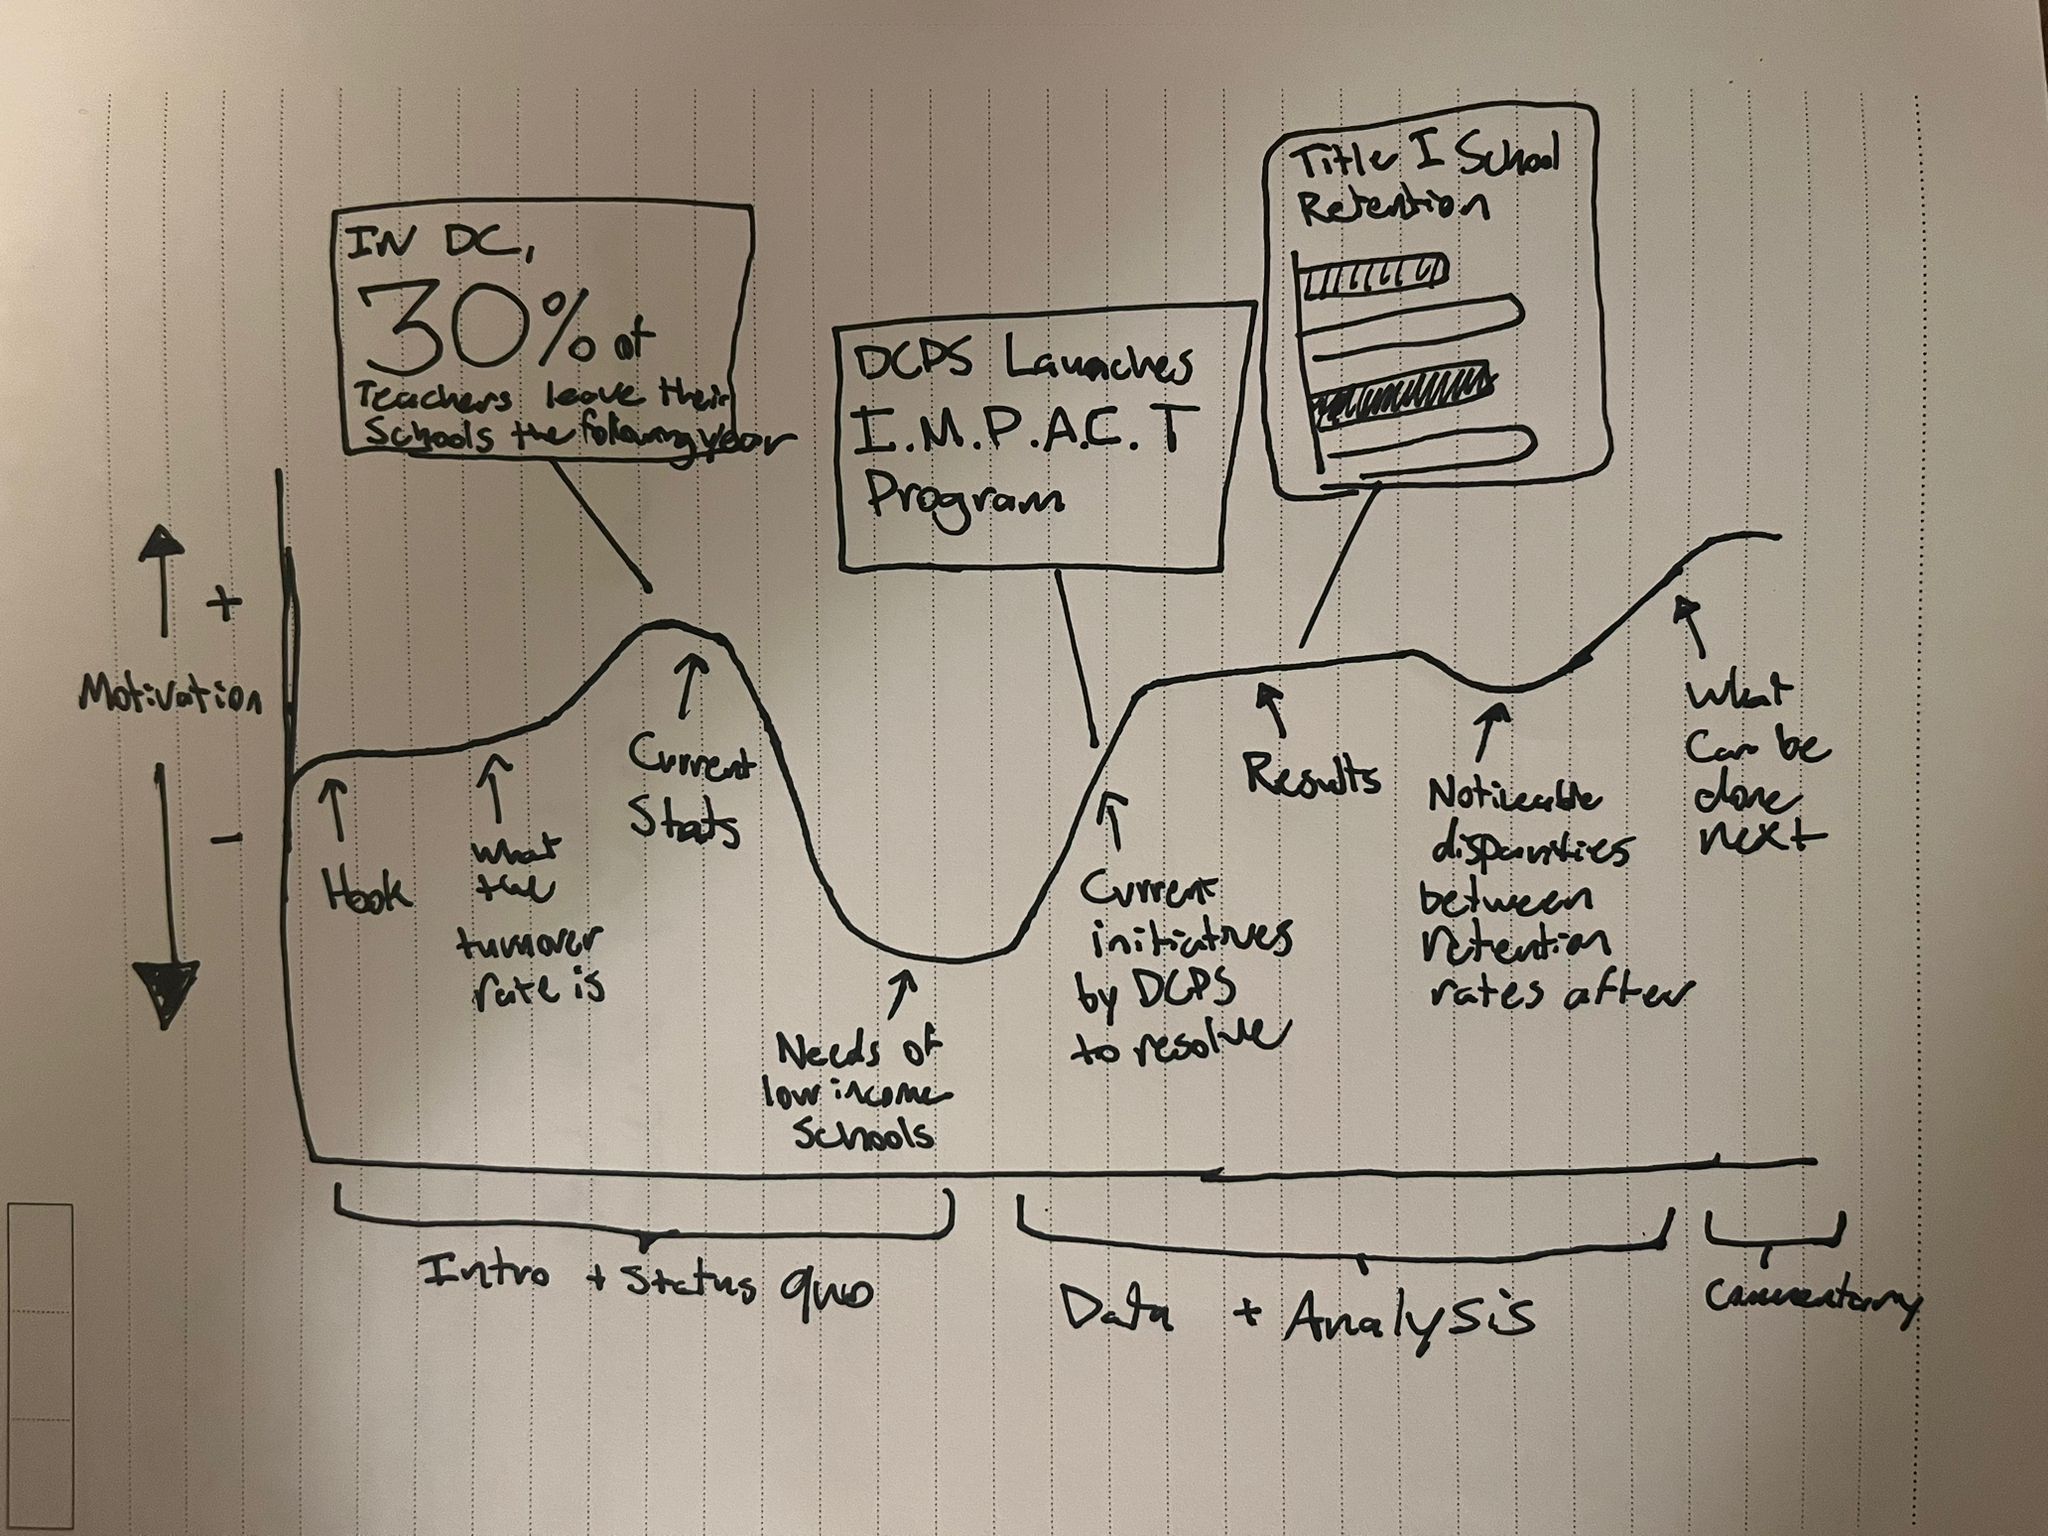 IN DC,
30% of
Teachers leave their
Schools the following year
DCPS Launches
I.M.P.A.C.T
Program
Title I School
Retention
+
Motivation
-
Hook
what
the
turnover
rate is
Current
Stats
Needs of
low income
Schools
Current
initiatives
by DCPS
to resolve
Results
Noticeable
disparities
between
retention
rates after
What
Can be
done
next
Intro + Status quo
Data + Analysis
Commentary